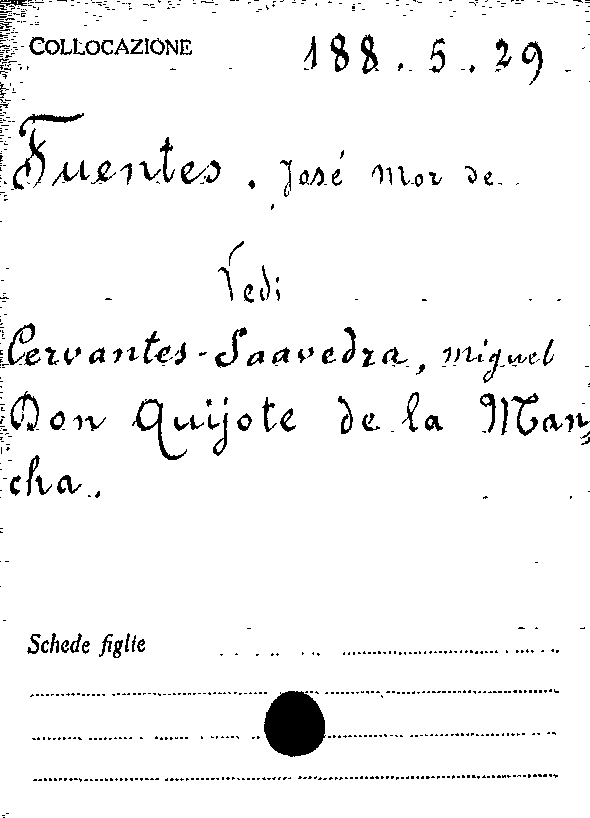 COLLOCAZIONE 188.5.29
Fuentes. José Mor de
Vedi
Cervantes-Saavedra, Miguel
Don Quijote de la Man=
cha.
Schede figlie